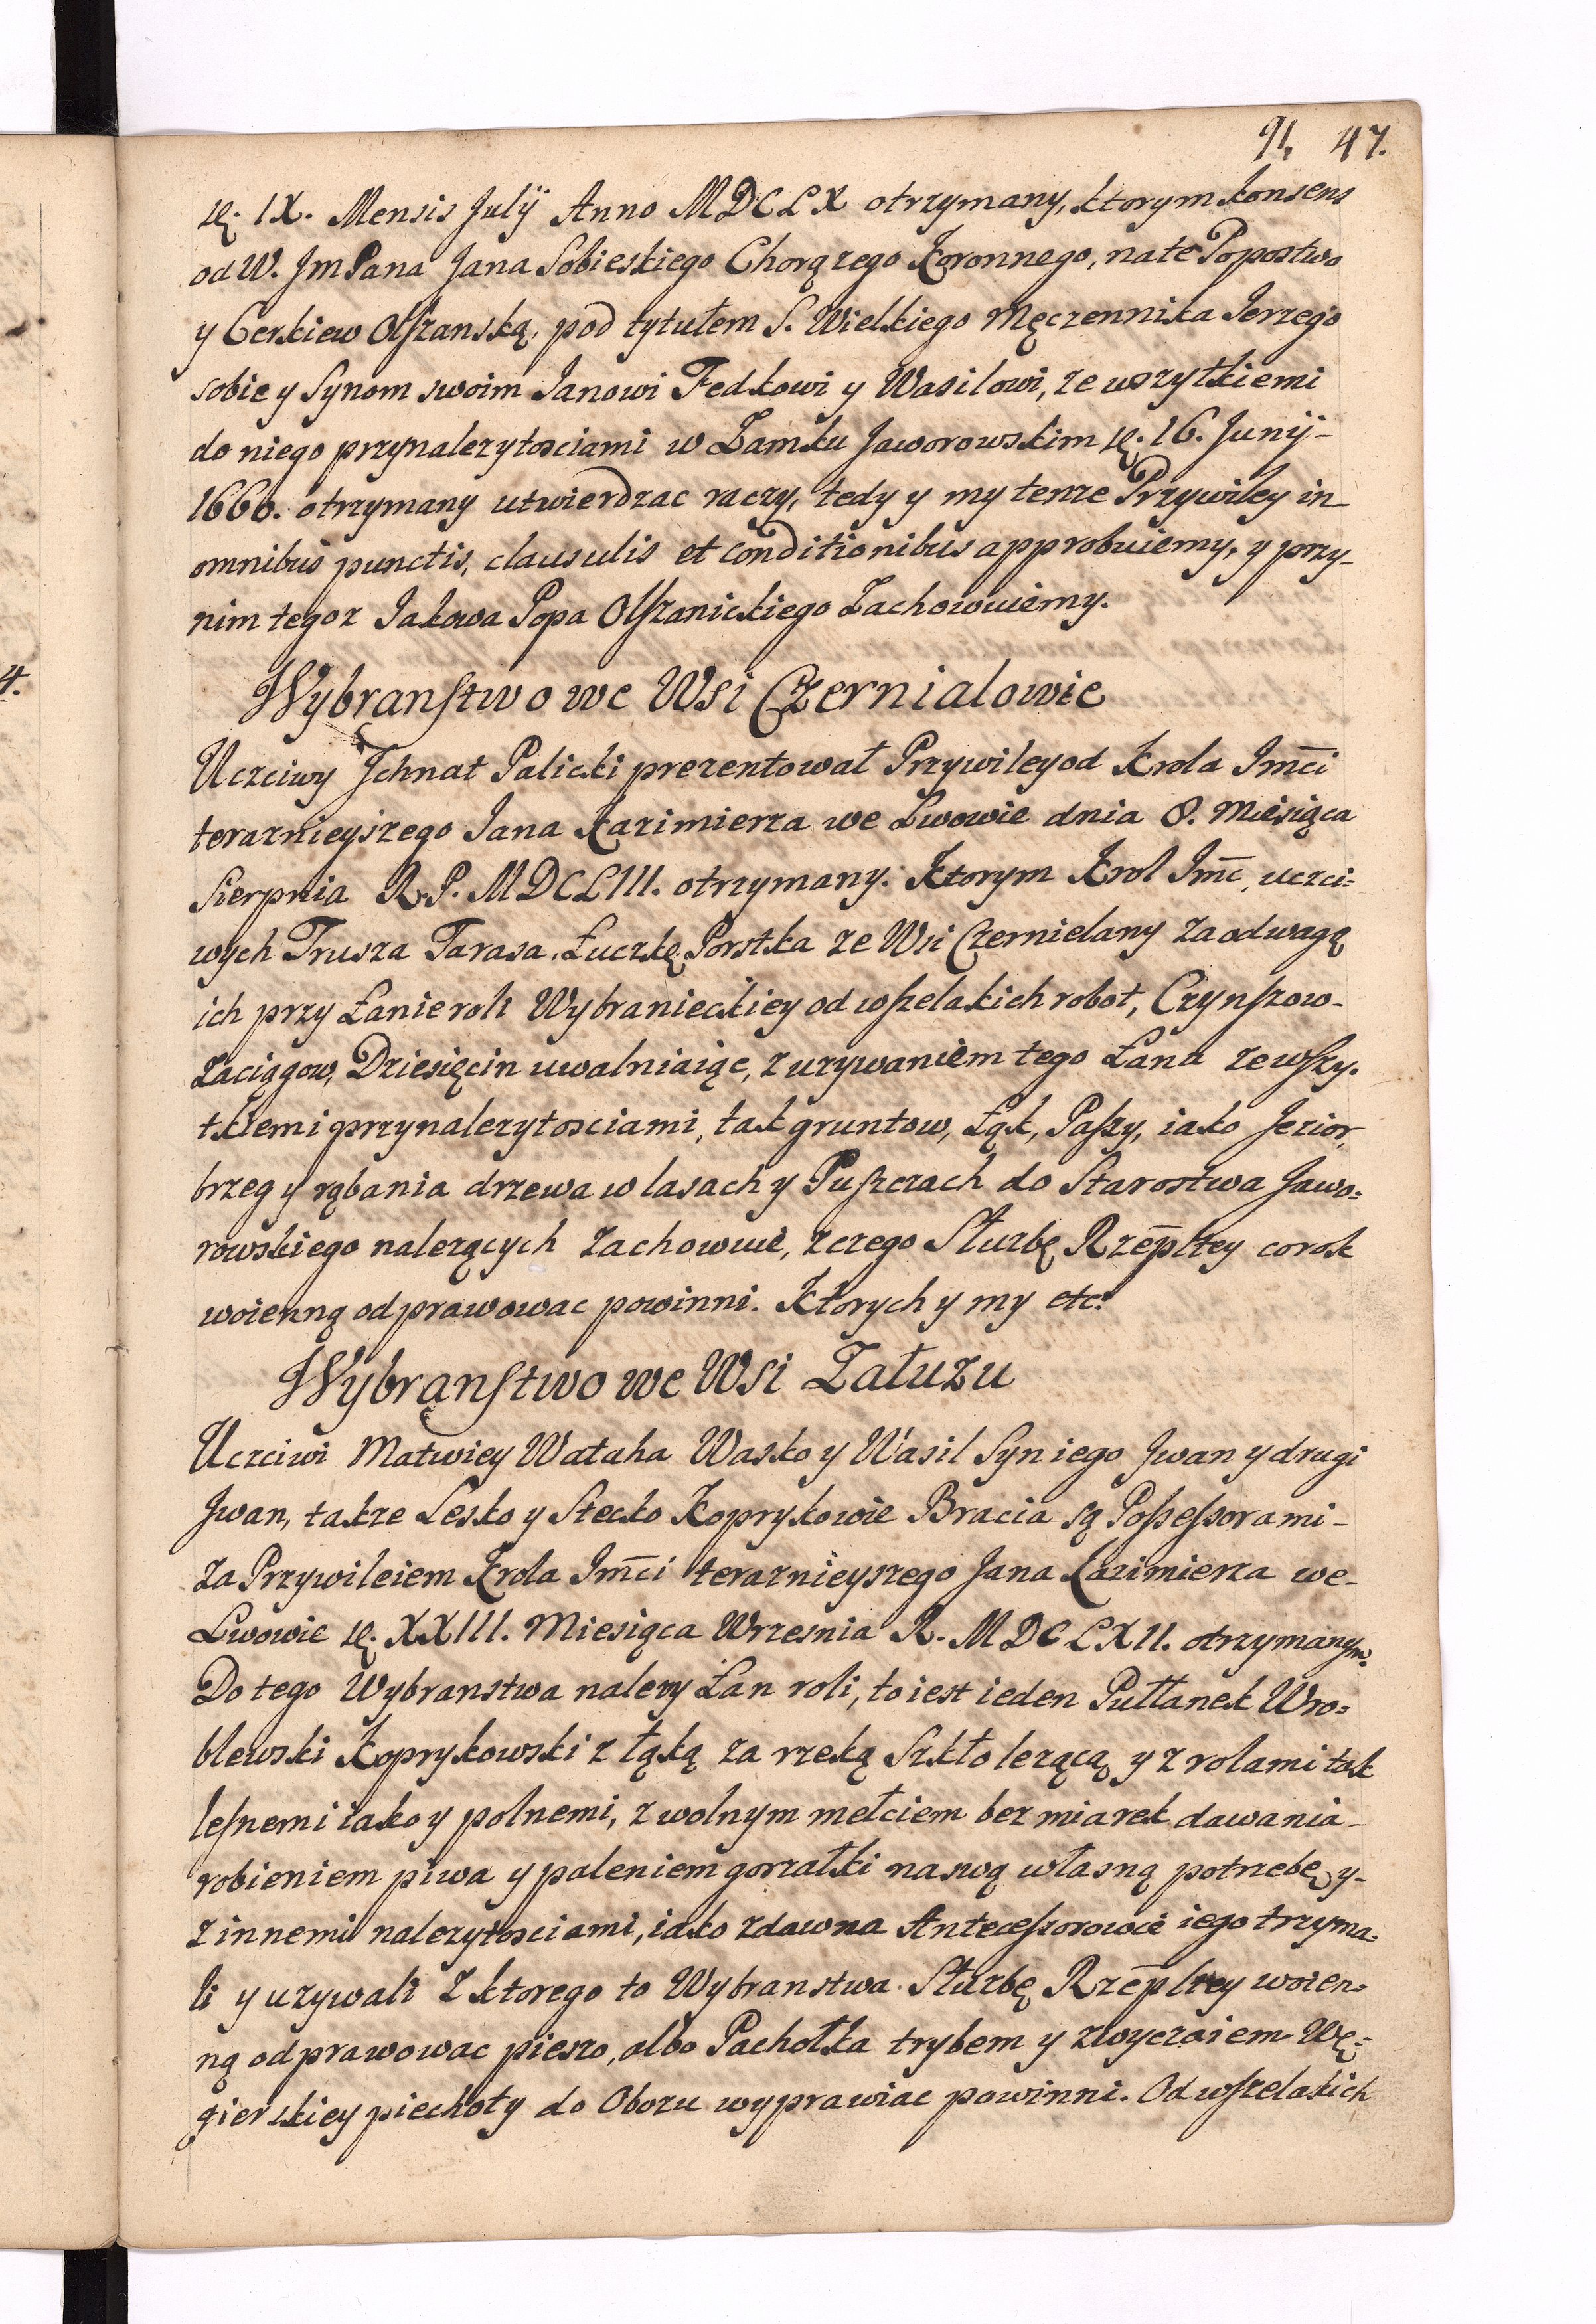 91, 47.
4.
IX. Mensis Julij Anno MDCLX otrzymany, ktorym konsens
od W. Jm Pana Jana Sobieskiego Chorązego Koronnego, na te Popostwo
y Cerkiew Olſzanską, pod tytułem S. Wielkiego Męczennika Jerzego
sobie y Synom swoim Janowi Fedkowi y Wasilowi, ze wszytkiemi
do niego przynalezytosciami w Zamku Jaworowskim 16. Junij-
1660. otrzymany utwierdzac raczy, tedy y my tenze Przywiley in-
omnibus punctis, clausulis et conditionibus approbuiemy, y przy-
nim tegoz Jakowa Popa Olſzanickiego Zachowuiemy.
Wybranſtwo we Wsi Czernialowie
Uczciwy Jchnat Palicki prezentował Przywiley od Krola Jm̄ci
teraznieyszego Jana Kazimierza we Lwowie dnia 8. Miesiąca
Sierpnia R.P. MDCLIII. otrzymany. Ktorym Krol Jm̄c, uczci=
wych Trusza Tarasa, Łuczkę, Porstka ze Wsi Czernielany za odwagę
ich przy Łanie roli Wybranieckiey od wſzelakich robot, Czynſzow-
zaciągow, Dziesięcin uwalniaiąc, z uzywaniem tego Łana ze wſzy.
tkiemi przynalezytosciami, tak gruntow, Łąk, Paſzy, iako Jezior,
brzeg y rąbania drzewa w lasach y Puſzczach do Starostwa Jawo=
rowskiego nalezących zachowuie, z czego Służbę Rzēpltey corok
woienną odprawowac powinni. Ktorych y my etc:
Wybranſtwo we Wsi Załuzu
Uczciwi Matwiey Wataha Wasko y Wasil Syn iego Jwan y drugi
Jwan, takze Lesko y Stecko Koprykowie Bracia są Poſseſsorami-
za Przywileiem Krola Jm̄ci teraznieyszego Jana Kazimierza we-
Lwowie XXIII. Miesiąca Wrzesnia R. MDCLXII. otrzymanym.
Do tego Wybranstwa nalezy Łan roli, to iest ieden Pułłanek Wro=
blewski Koprykowski z łąką za rzeką Szkło lezącą y z rolami tak
leſnemi iako y polnemi, z wolnym mełciem bez miarek dawania-
robieniem piwa y paleniem gorzałki na swą własną potrzebę y-
z innemi nalezytosciami, iako zdawna Anteceſsorowie iego trzyma=
li y uzywali z ktorego to Wybranstwa Służbę Rzēpltey woien=
ną odprawowac pieszo, albo Pachołka trybem y zwyczaiem Wę=
gierskiey piechoty do Obozu wyprawiac powinni. Od wſzelakich